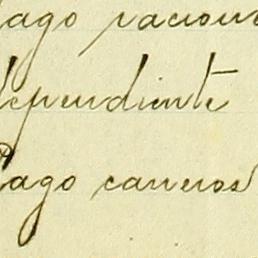 Pago raciona
dependiente
Pago carreros